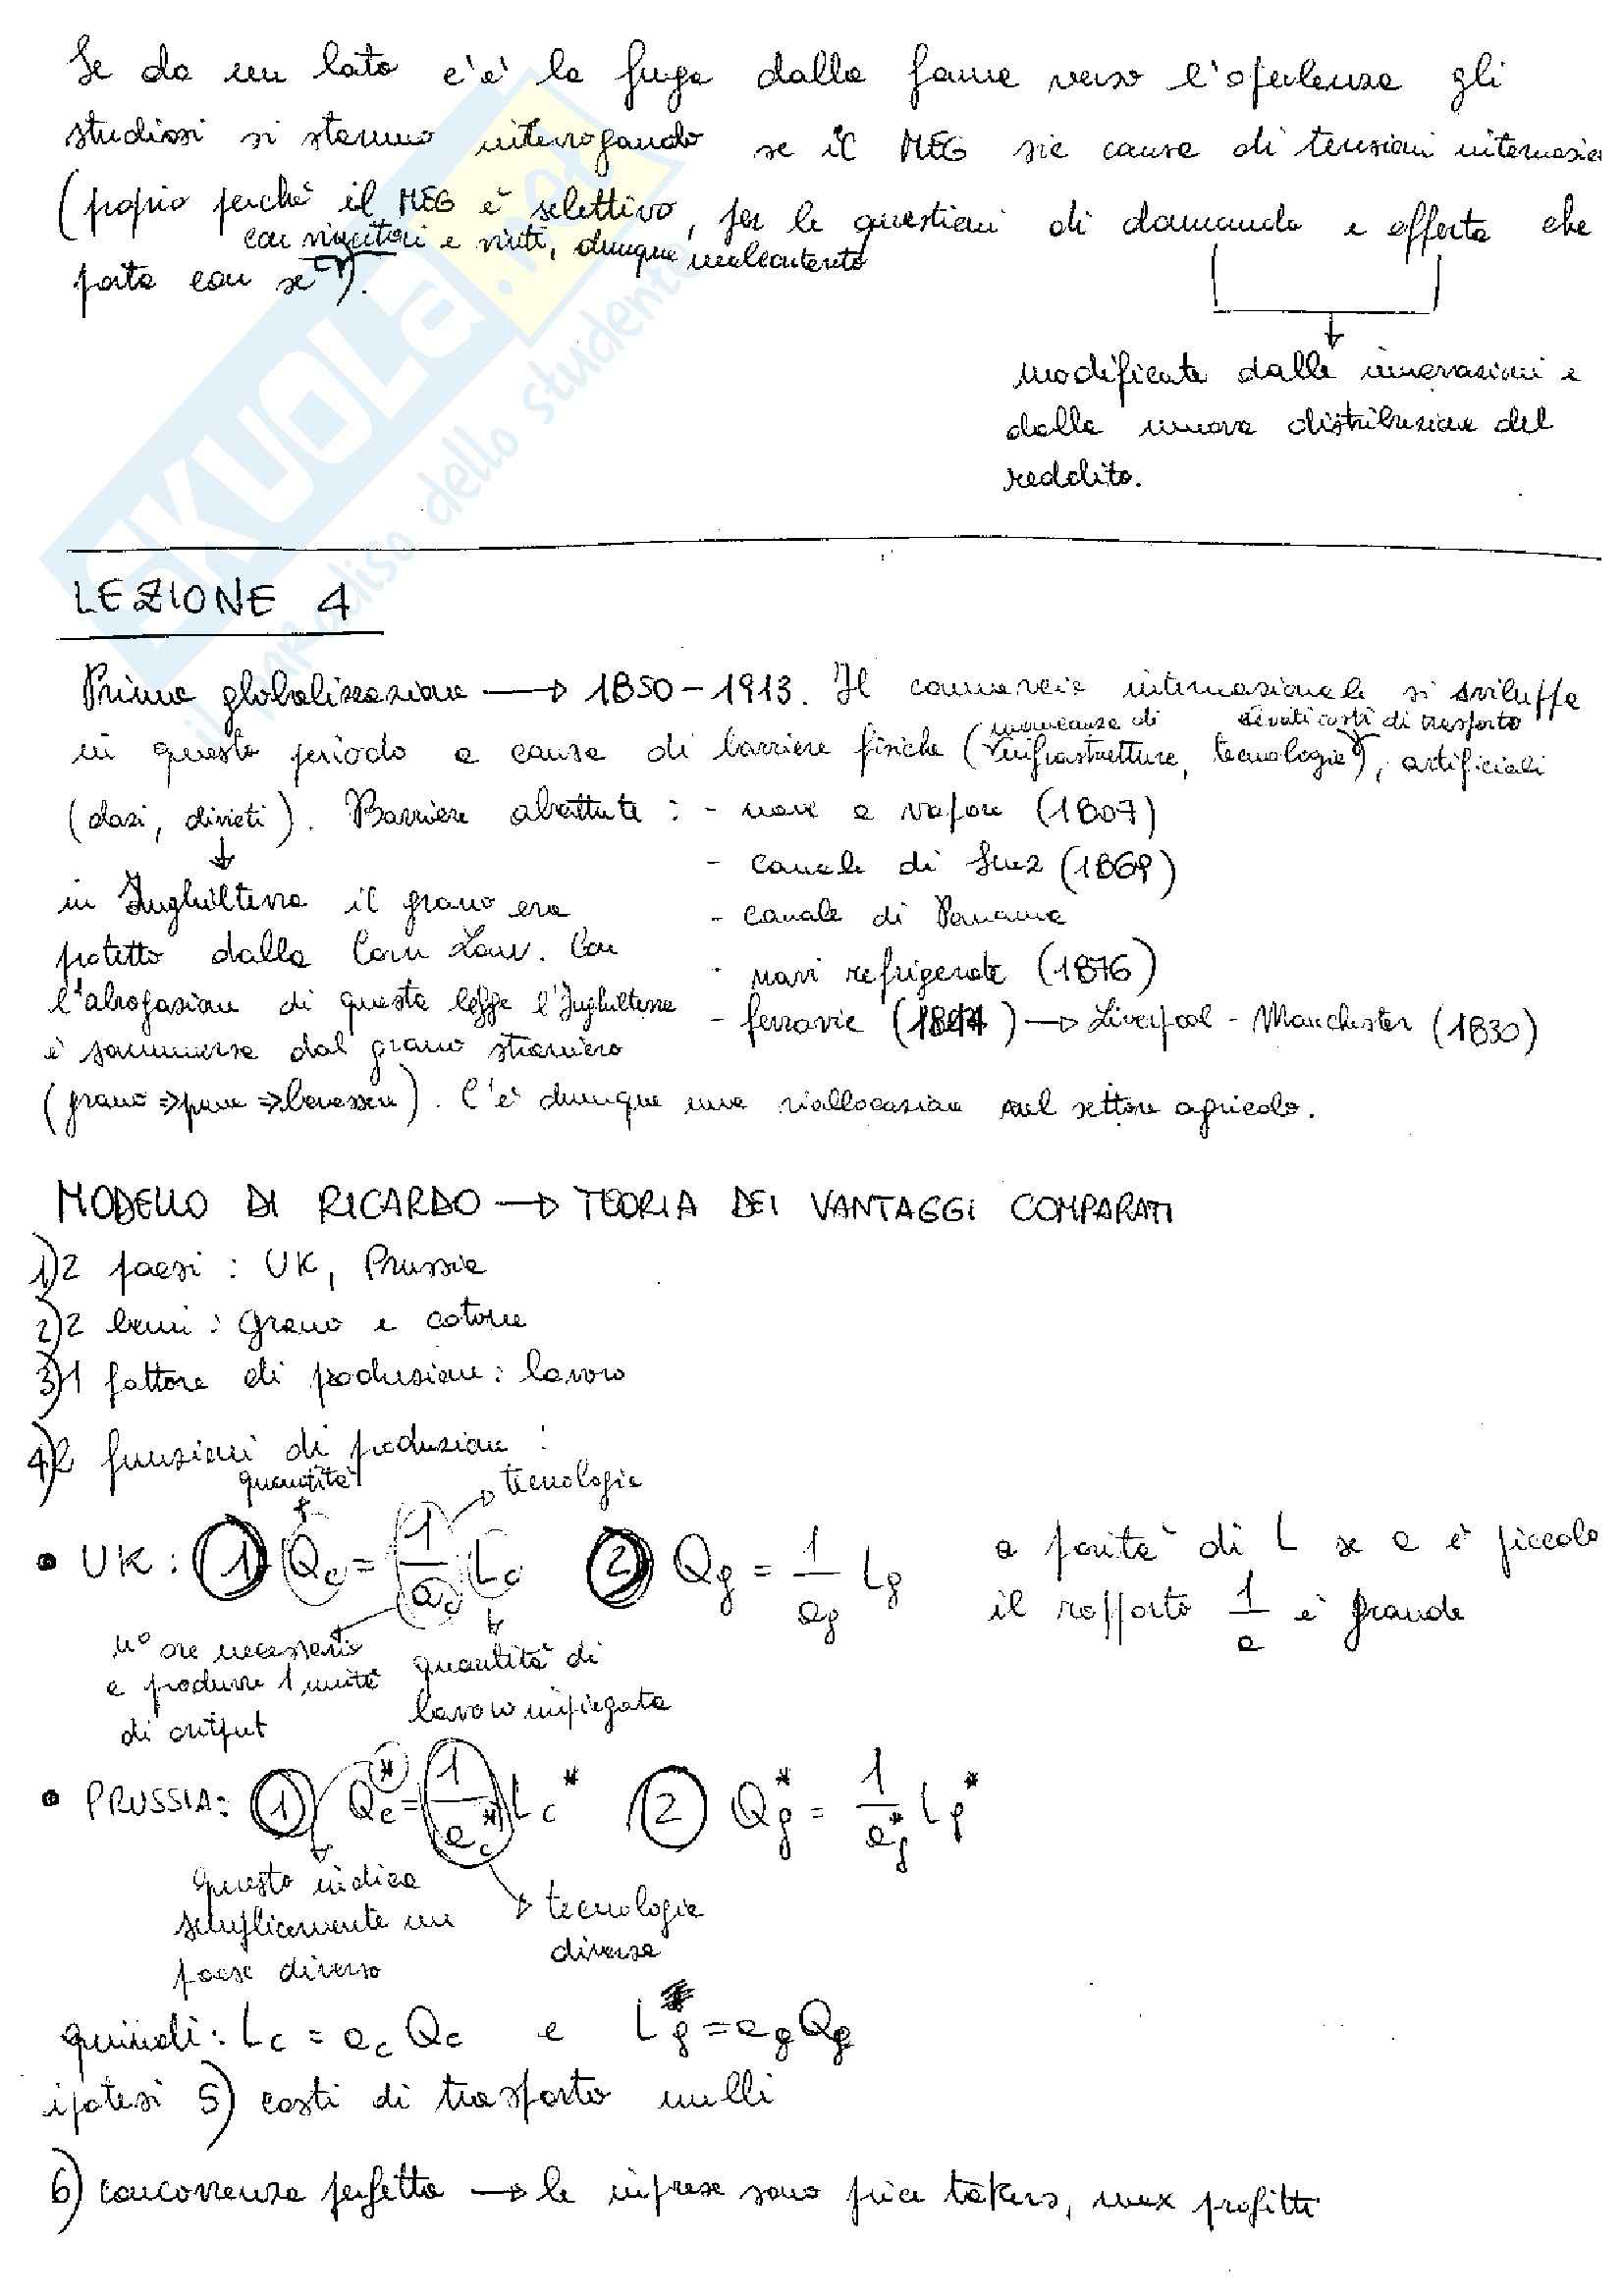 Se da un lato c'è la fuga dalla fame verso l'opulenza gli
studiosi si stanno interrogando se il MEG sia causa di tensioni internazio
(proprio perché il MEG è selettivo, per le questioni di domanda e offerta che
con vincitori e vinti, dunque malcontento
porta con se).
modificate dalle innovazioni e
dalla nuova distribuzione del
reddito.
LEZIONE 4
Prima globalizzazione → 1850-1913. Il commercio internazionale si sviluppa
mancanza di elevati costi di trasporto
in questo periodo a causa di barriere fisiche (infrastrutture, tecnologie), artificiali
(dazi, divieti). Barriere abbattute: - nave a vapore (1807)
- canale di Suez (1869)
in Inghilterra il grano era
- canale di Panama
protetto dalla Corn Law. Con
- navi refrigerate (1876)
l'abrogazione di questa legge l'Inghilterra
- ferrovie → Liverpool - Manchester (1830)
è sommersa dal grano straniero
(grano ⇒ pane ⇒ benessere). C'è dunque una riallocazione nel settore agricolo.
MODELLO DI RICARDO → TEORIA DEI VANTAGGI COMPARATI
1) 2 paesi: UK, Prussia
2) 2 beni: grano e cotone
3) 1 fattore di produzione: lavoro
4) 2 funzioni di produzione:
quantità tecnologia
• UK: 1 Qc = 1/ac Lc 2 Qg = 1/ag Lg a parità di L se a è piccolo
il rapporto 1/a è grande
n° ore necessario
a produrre 1 unità
di output
quantità di
lavoro impiegata
• PRUSSIA: 1 Qc* = 1/ac* Lc* 2 Qg* = 1/ag* Lg*
questo indica
semplicemente un
paese diverso
tecnologia
diversa
quindi: Lc = ac Qc e Lg = ag Qg
ipotesi 5) costi di trasporto nulli
6) concorrenza perfetta → le imprese sono price takers, max profitti
SKUOLA.net
il paradiso dello studente